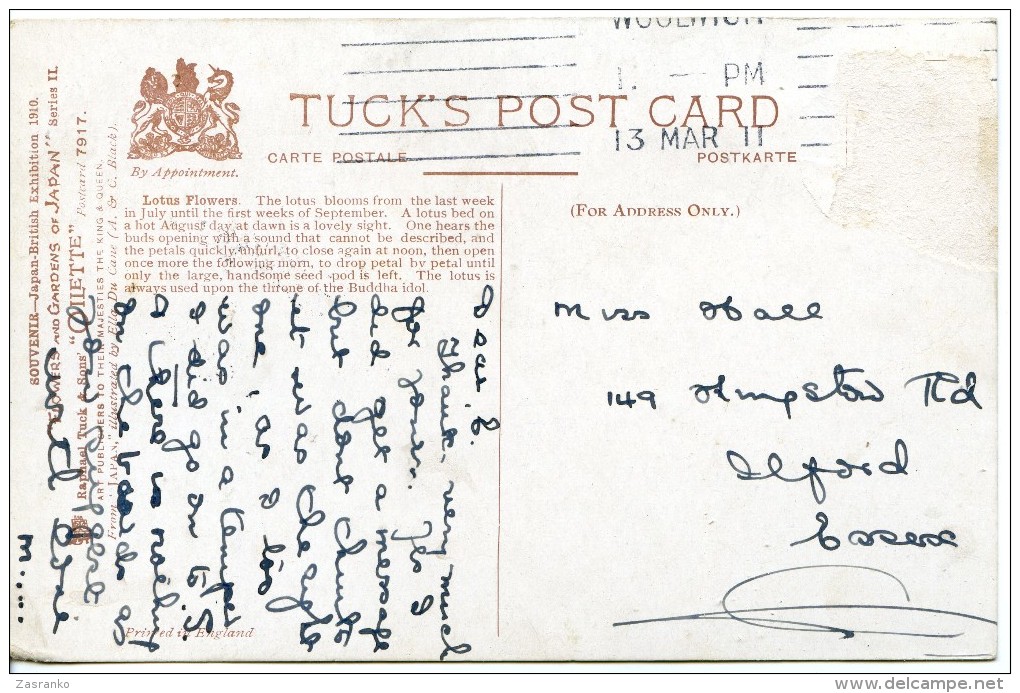 WOOLWICH
1. — PM
13 MAR 11
TUCK'S POST CARD
CARTE POSTALE
POSTKARTE
By Appointment.
(FOR ADDRESS ONLY.)
Lotus Flowers. The lotus blooms from the last week
in July until the first weeks of September. A lotus bed on
a hot August day at dawn is a lovely sight. One hears the
buds opening with a sound that cannot be described, and
the petals quickly unfurl, to close again at noon, then open
once more the following morn, to drop petal by petal until
only the large, handsome seed pod is left. The lotus is
always used upon the throne of the Buddha idol.
SOUVENIR—Japan-British Exhibition 1910.
"FLOWERS AND GARDENS OF JAPAN" Series II.
Raphael Tuck & Sons' "OILETTE" Postcard 7917.
ART PUBLISHERS TO THEIR MAJESTIES THE KING & QUEEN.
From "JAPAN," illustrated by Ella Du Cane (A. & C. Black).
Dear E.
Thanks very much
for yours. Yes I
did get a message
but dont think
it was the right
one, as I
was in a temper
I did go on to S.
& there is
on the boards
your
until
M....
Miss Hall
149 Rd
Ilford
Essex
Printed in England
Zasranko
delcampe.net